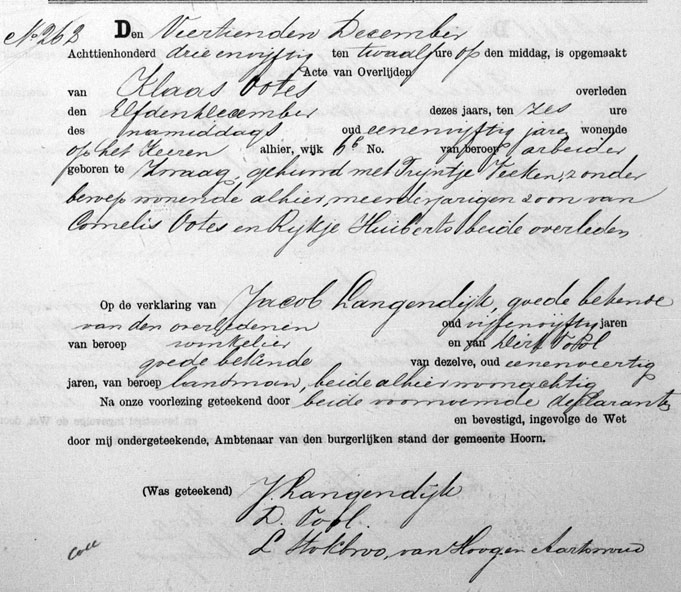 No 262
Den Viertienden December
Achttienhonderd drie en vijftig ten twaalf ure op den middag, is opgemaakt
Acte van Overlijden
van Klaas Ootes overleden
den Elfden December dezes jaars, ten zes ure
des namiddags oud eenenvijftig jaren wonende
op het Keeren alhier, wijk 6e No. van beroep arbeider
geboren te Zwaag, gehuwd met Trijntje Teeken, zonder
beroep wonende alhier, meerderjarigen zoon van
Cornelis Ootes en Rijkje Huiberts beide overleden
Op de verklaring van Jacob Langendijk, goede bekende
van den overledenen oud vijfenvijftig jaren
van beroep winkelier en van Dirk Pool
goede bekende van dezelve, oud eenenveertig
jaren, van beroep landman, beide alhier woonachtig
Na onze voorlezing geteekend door beide voornoemde declaranten
en bevestigd, ingevolge de Wet
door mij ondergeteekende, Ambtenaar van den burgerlijken stand der gemeente Hoorn.
(Was geteekend) J. Langendijk
D. Pool.
L Stokbroo, van Hoogen Aartswoud
Coll